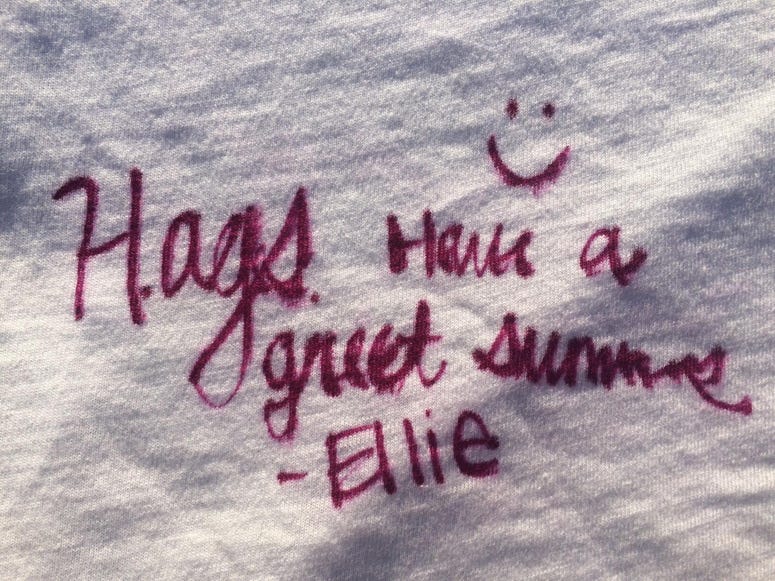 H.ags. Have a
great summer
- Ellie